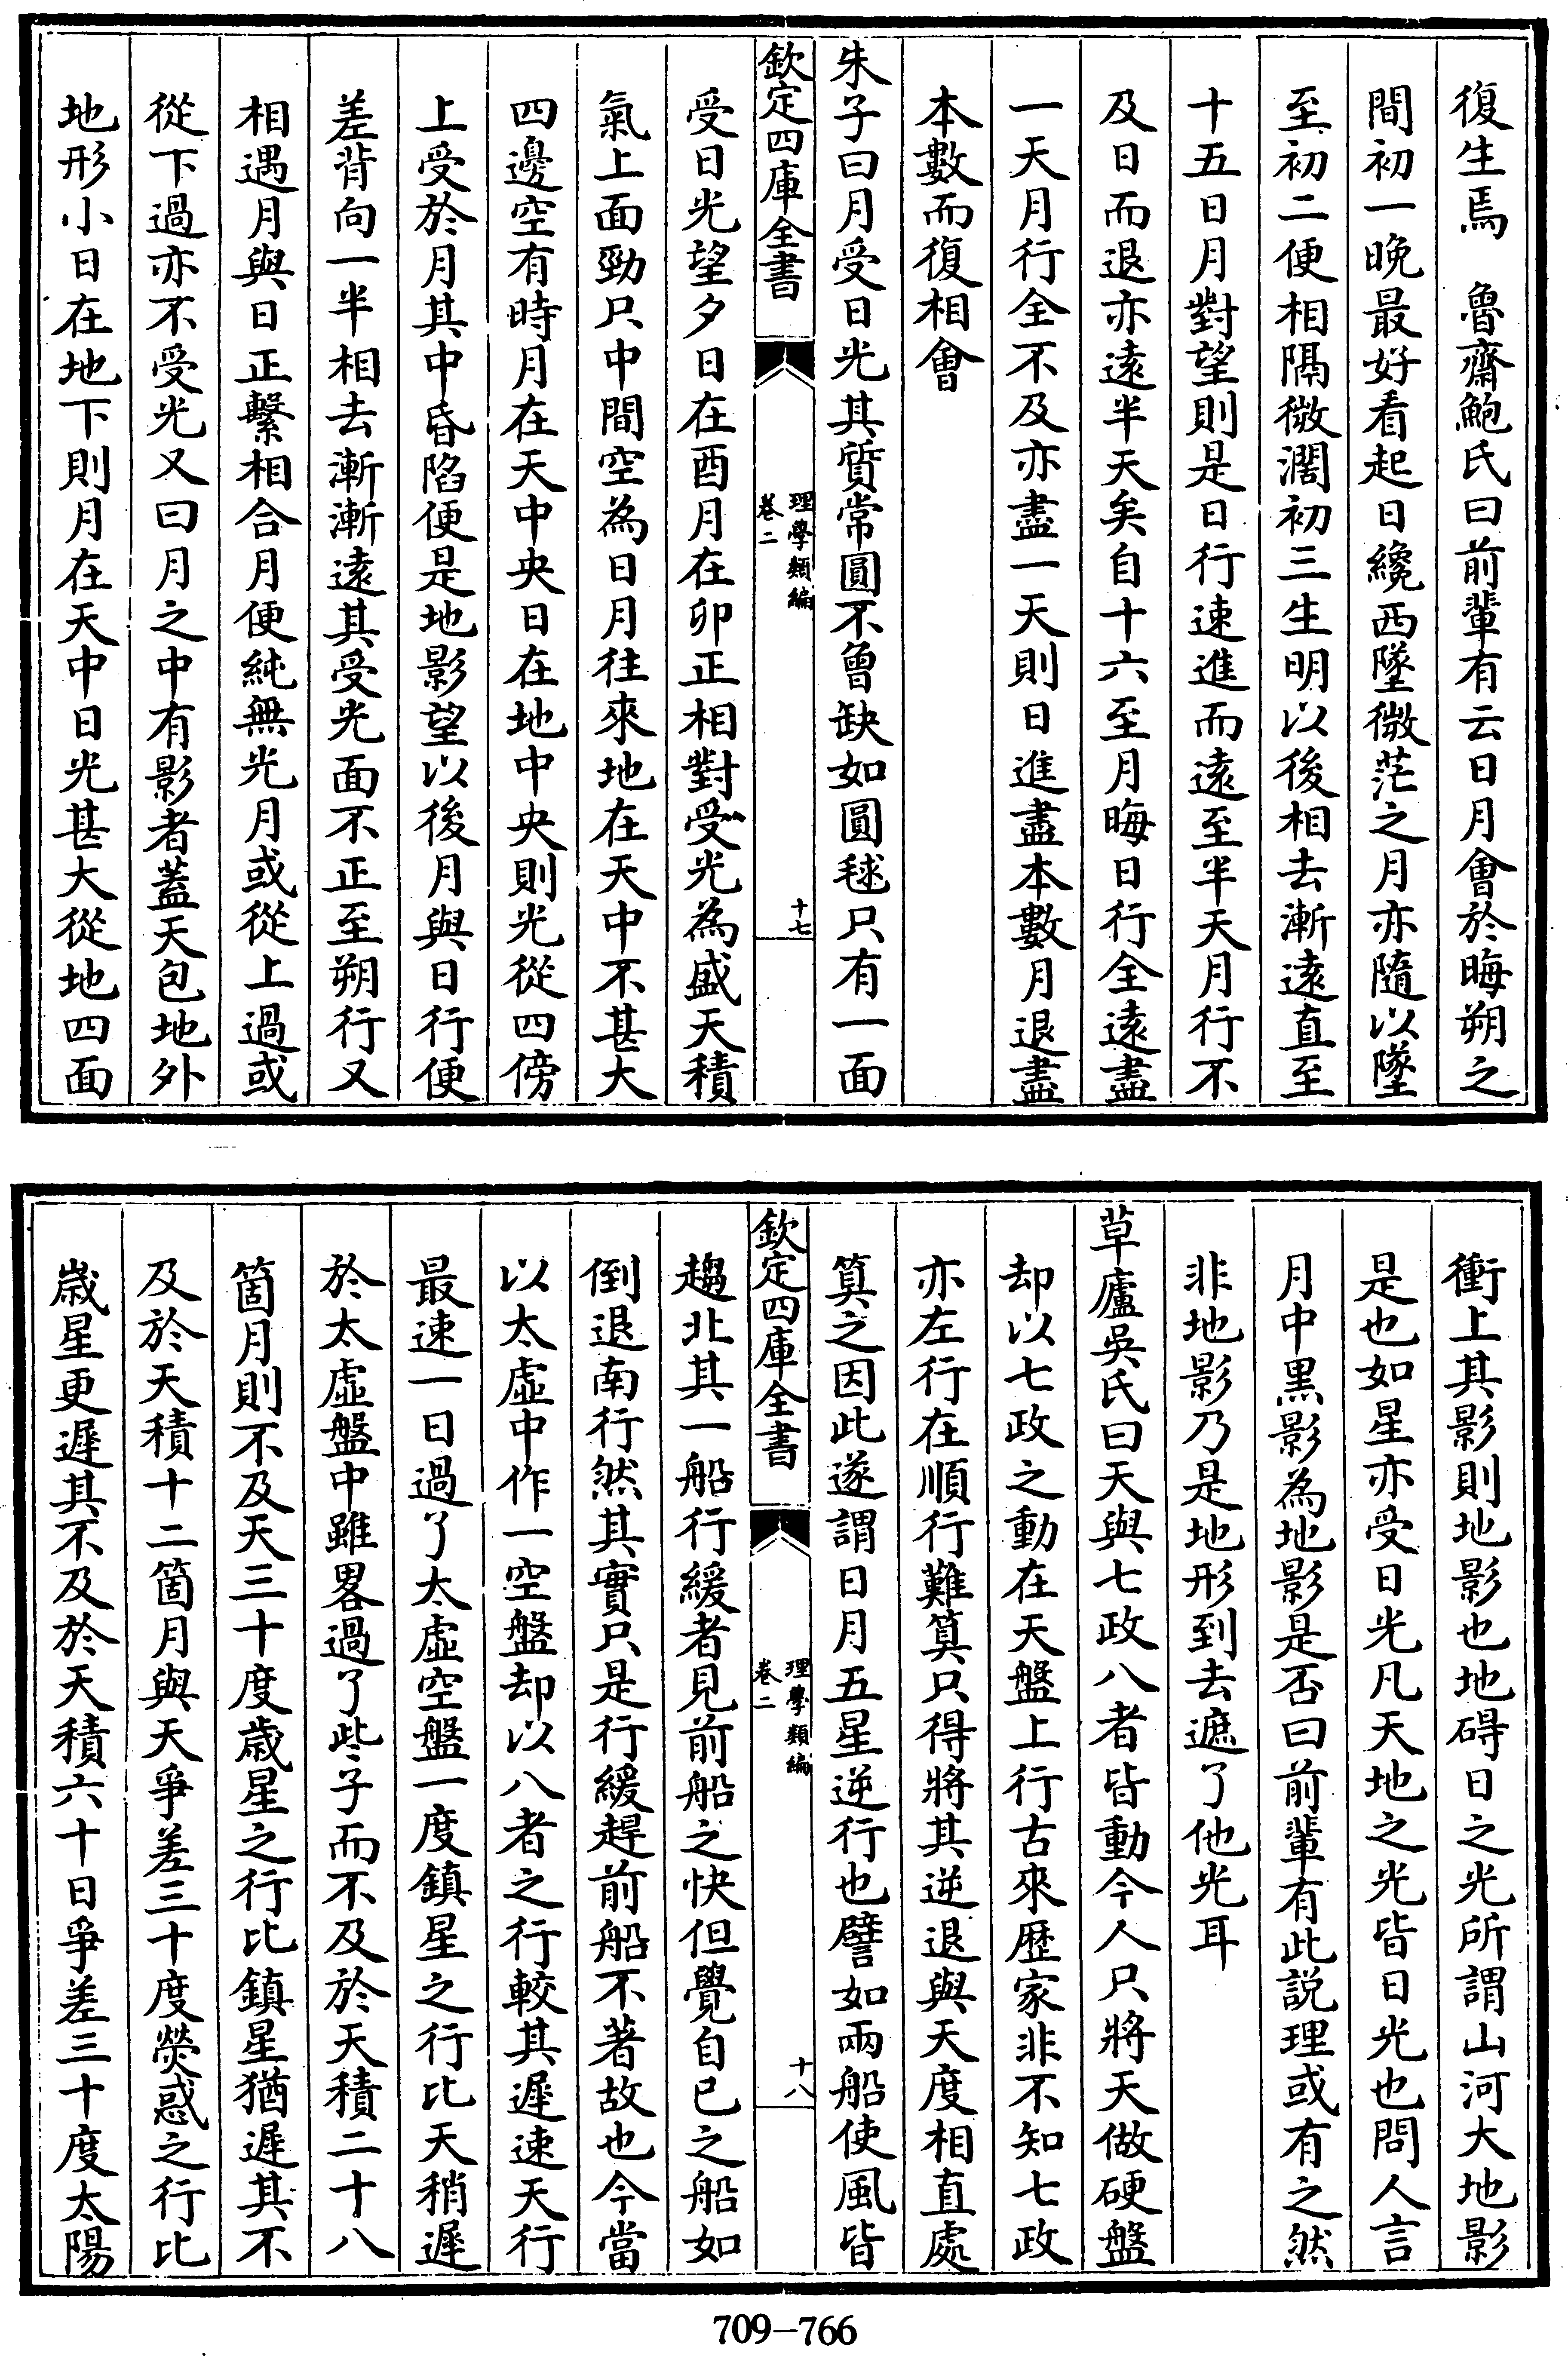 復生焉　魯齋鮑氏曰前輩有云日月會於晦朔之
間初一晚最好看起日纔西墜微茫之月亦隨以墜
至初二便相隔微濶初三生明以後相去漸遠直至
十五日月對望則是日行速進而遠至半天月行不
及日而退亦遠半天矣自十六至月晦日行全遠盡
一天月行全不及亦盡一天則日進盡本數月退盡
本數而復相會
朱子曰月受日光其質常圓不曾缺如圓毬只有一面
欽定四庫全書
理學類編
卷二
十七
受日光望夕日在酉月在卯正相對受光為盛天積
氣上面勁只中間空為日月往來地在天中不甚大
四邊空有時月在天中央日在地中央則光從四傍
上受於月其中昏陷便是地影望以後月與日行便
差背向一半相去漸漸遠其受光面不正至朔行又
相遇月與日正繫相合月便純無光月或從上過或
從下過亦不受光又曰月之中有影者蓋天包地外
地形小日在地下則月在天中日光甚大從地四面
衝上其影則地影也地碍日之光所謂山河大地影
是也如星亦受日光凡天地之光皆日光也問人言
月中黑影為地影是否曰前輩有此説理或有之然
非地影乃是地形到去遮了他光耳
草廬吳氏曰天與七政八者皆動今人只將天做硬盤
却以七政之動在天盤上行古來歴家非不知七政
亦左行在順行難算只得將其逆退與天度相直處
算之因此遂謂日月五星逆行也譬如兩船使風皆
欽定四庫全書
理學類編
卷二
十八
趨北其一船行緩者見前船之快但覺自已之船如
倒退南行然其實只是行緩趕前船不著故也今當
以太虛中作一空盤却以八者之行較其遲速天行
最速一日過了太虛空盤一度鎮星之行比天稍遲
於太虛盤中雖畧過了些子而不及於天積二十八
箇月則不及天三十度歲星之行比鎮星猶遲其不
及於天積十二箇月與天爭差三十度熒惑之行比
歲星更遲其不及於天積六十日爭差三十度太陽
709—766